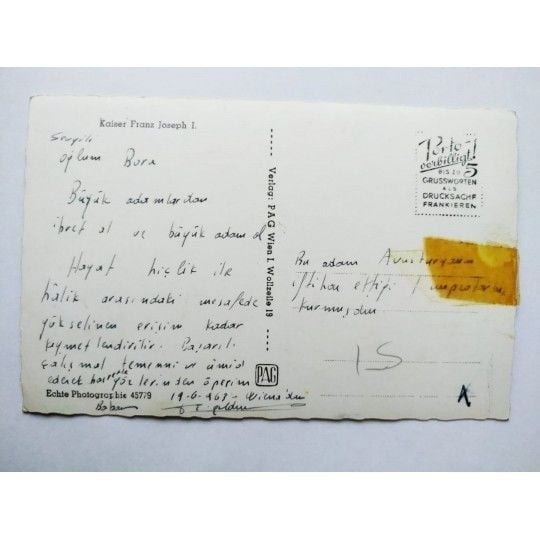 Kaiser Franz Joseph I.
Sevgili
oğlum Bora
Büyük adamlardan
ibret al ve büyük adam ol
Hayat hiçlik ile
hâlik arasındaki mesafede
yükselinen erişim kadar
kıymetlendirilir. Başarılı
çalışmal temenni ve ümid
ederek gözlerinden öperim
Echte Photographie 45779
19-6-963 Viena'dan
Baban
Verlag: PAG Wien I, Wollzeile 19
PAG
Porto
verbilligt!
BIS ZU 5
GRUSSWORTEN
ALS
DRUCKSACHE
FRANKIEREN
Bu adam Avusturyanın
iftihar ettiği İmparatorun
kurmuşdur
IS
A